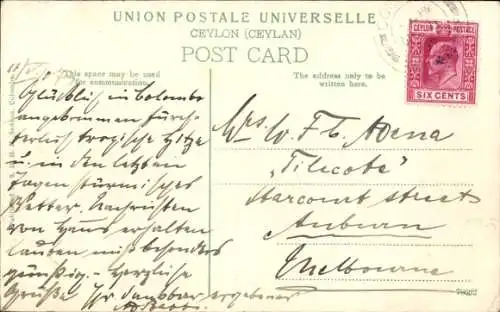 UNION POSTALE UNIVERSELLE
CEYLON (CEYLAN)
POST CARD
This space may be used
for communication.
The address only to be
written here.
CEYLON POSTAGE
SIX CENTS
Glücklich in Colombo
angekommen fürch-
terlich tropische Hitze
u. in den letzten
Tagen stürmisches
Wetter. Nachrichten
von Haus erhalten
lauten
günstig. – Herzliche
Grüße Ihr dankbar ergebener
Mrs W. F. C.
"Tilecote"
Harcourt street
Auburn
Melbourne